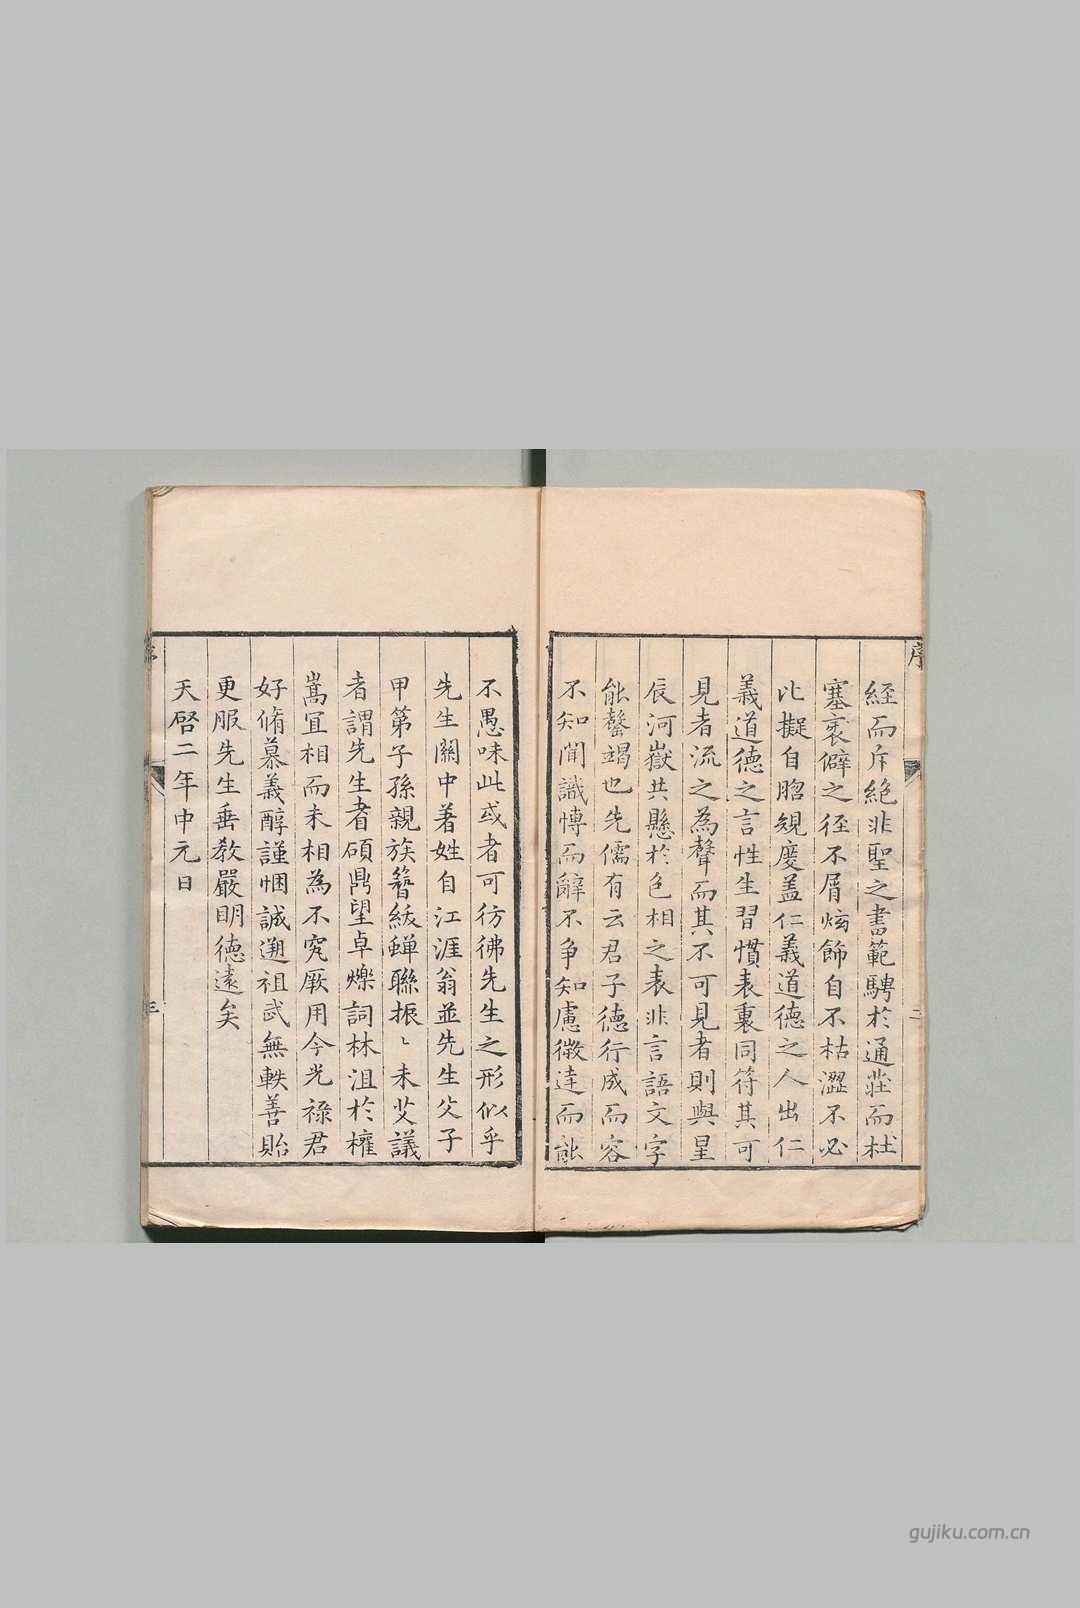 經而斥絕非聖之書範騁於通莊而杜
塞衺僻之徑不屑炫飾自不枯澀不必
比擬自脗䂓度盖仁義道德之人出仁
義道德之言性生習慣表裏同符其可
見者流之為聲而其不可見者則與星
辰河嶽共懸於色相之表非言語文字
能罄竭也先儒有云君子德行成而容
不知聞識博而辭不争知慮微達而能
不愚味此或者可彷彿先生之形似乎
先生關中著姓自江涯翁並先生父子
甲第子孫親族簪紱蟬聯振〻未艾議
者謂先生者碩鼎望卓爍詞林沮於權
嵩冝相而未相為不究厥用今光祿君
好脩慕義醇謹悃誠遡祖武無軼善貽
更服先生垂敎嚴明德逺矣
天啓二年中元日
序
三